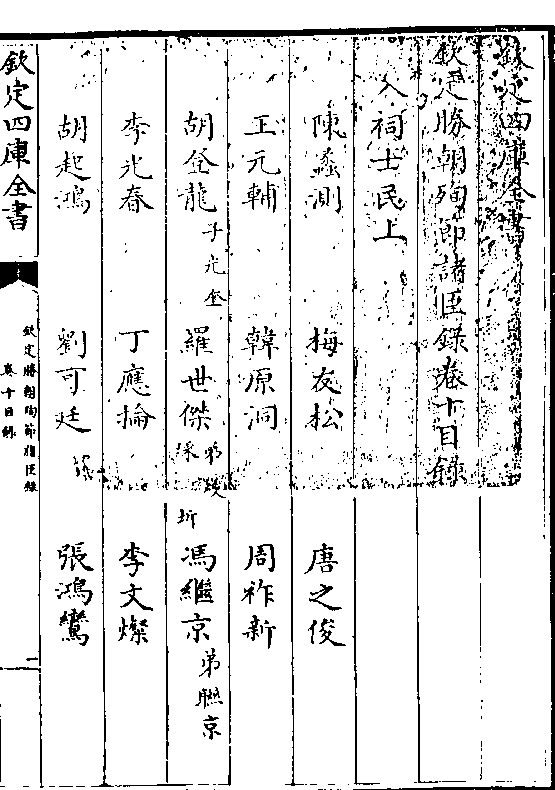 欽定四庫全書
欽定勝朝殉節諸臣錄卷十目錄
入祠士民上
陳蠡測 梅友松 唐之俊
王元輔 韓原洞 周祚新
胡登龍 子光奎 羅世傑 馮繼京 弟聮京
李光春 丁應掄 李文燦
胡起鴻 劉可廷 張鴻鸞
欽定四庫全書
欽定勝朝殉節諸臣錄
卷十目錄
一